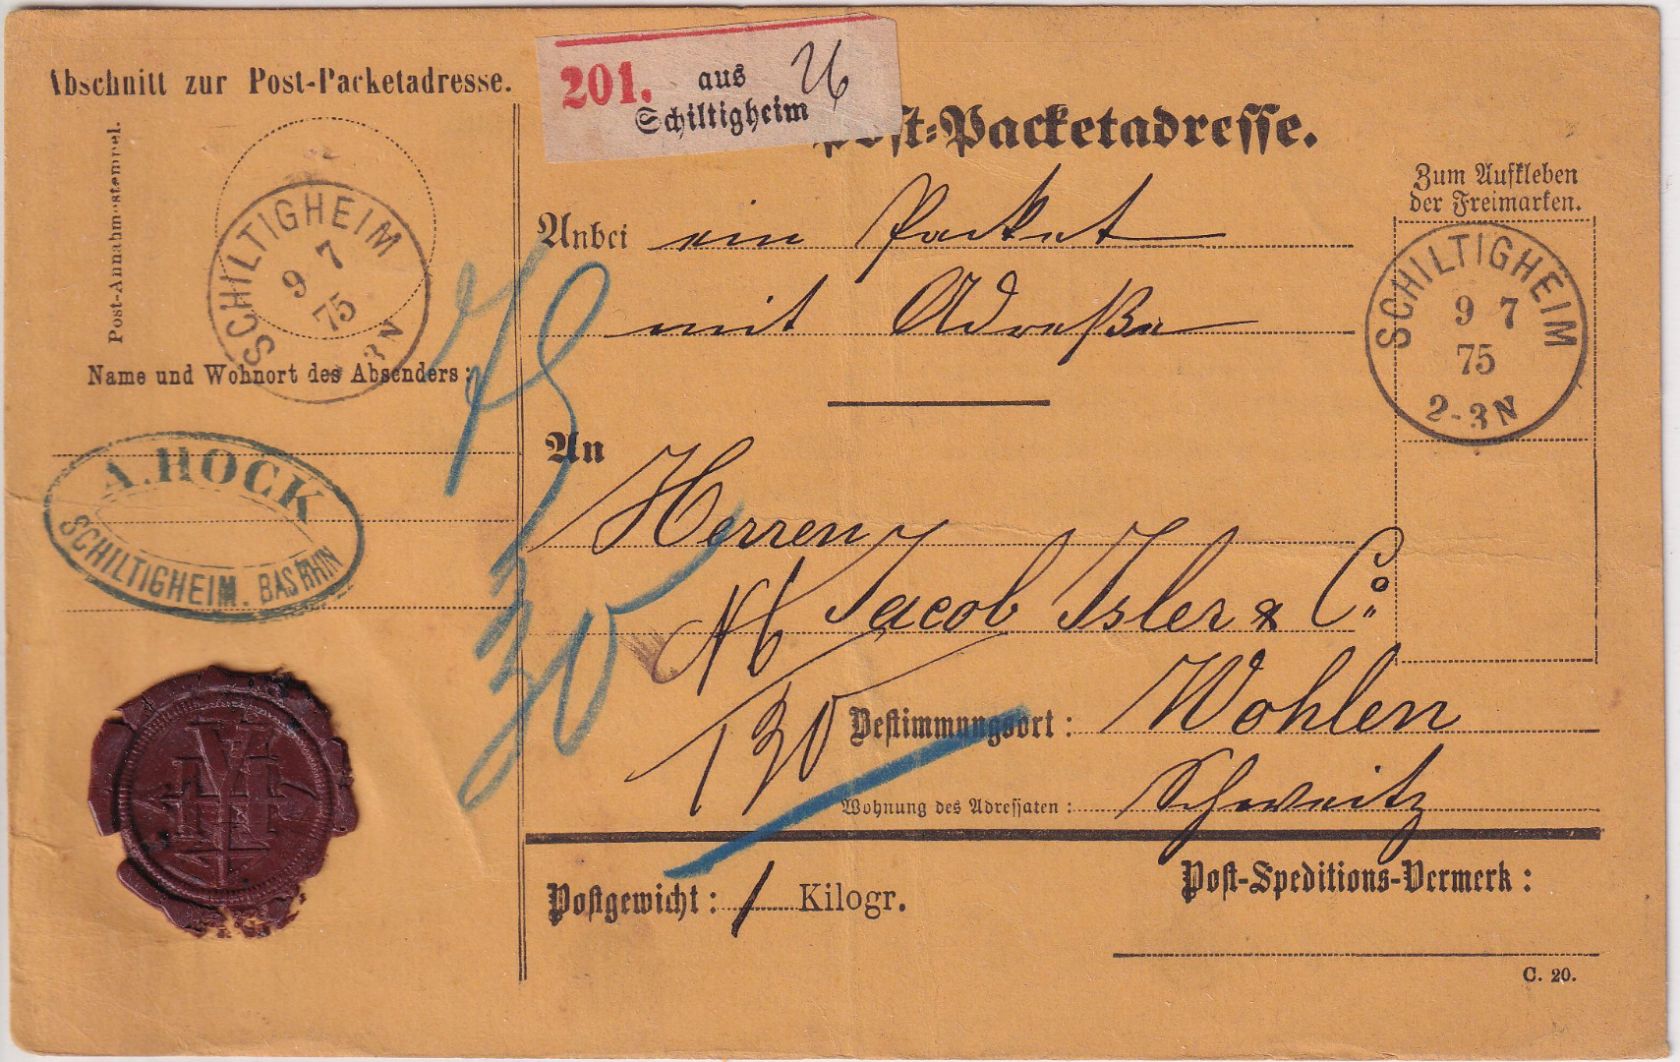 Abschnitt zur Post-Packetadresse.
Post-Annahmestempel.
SCHILTIGHEIM
9 7
75
3N
Name und Wohnort des Absenders:
A. HOCK
SCHILTIGHEIM. BAS RHIN
201. aus
Schiltigheim
Post-Packetadresse.
Zum Aufkleben
der Freimarken.
SCHILTIGHEIM
9 7
75
2-3N
Anbei ein Packet
mit Adreße
An
Herren
Jacob Isler & Co.
130
Bestimmungsort: Wohlen
Wohnung des Adressaten: Schweitz
Postgewicht: 1 Kilogr.
Post-Speditions-Vermerk:
C. 20.